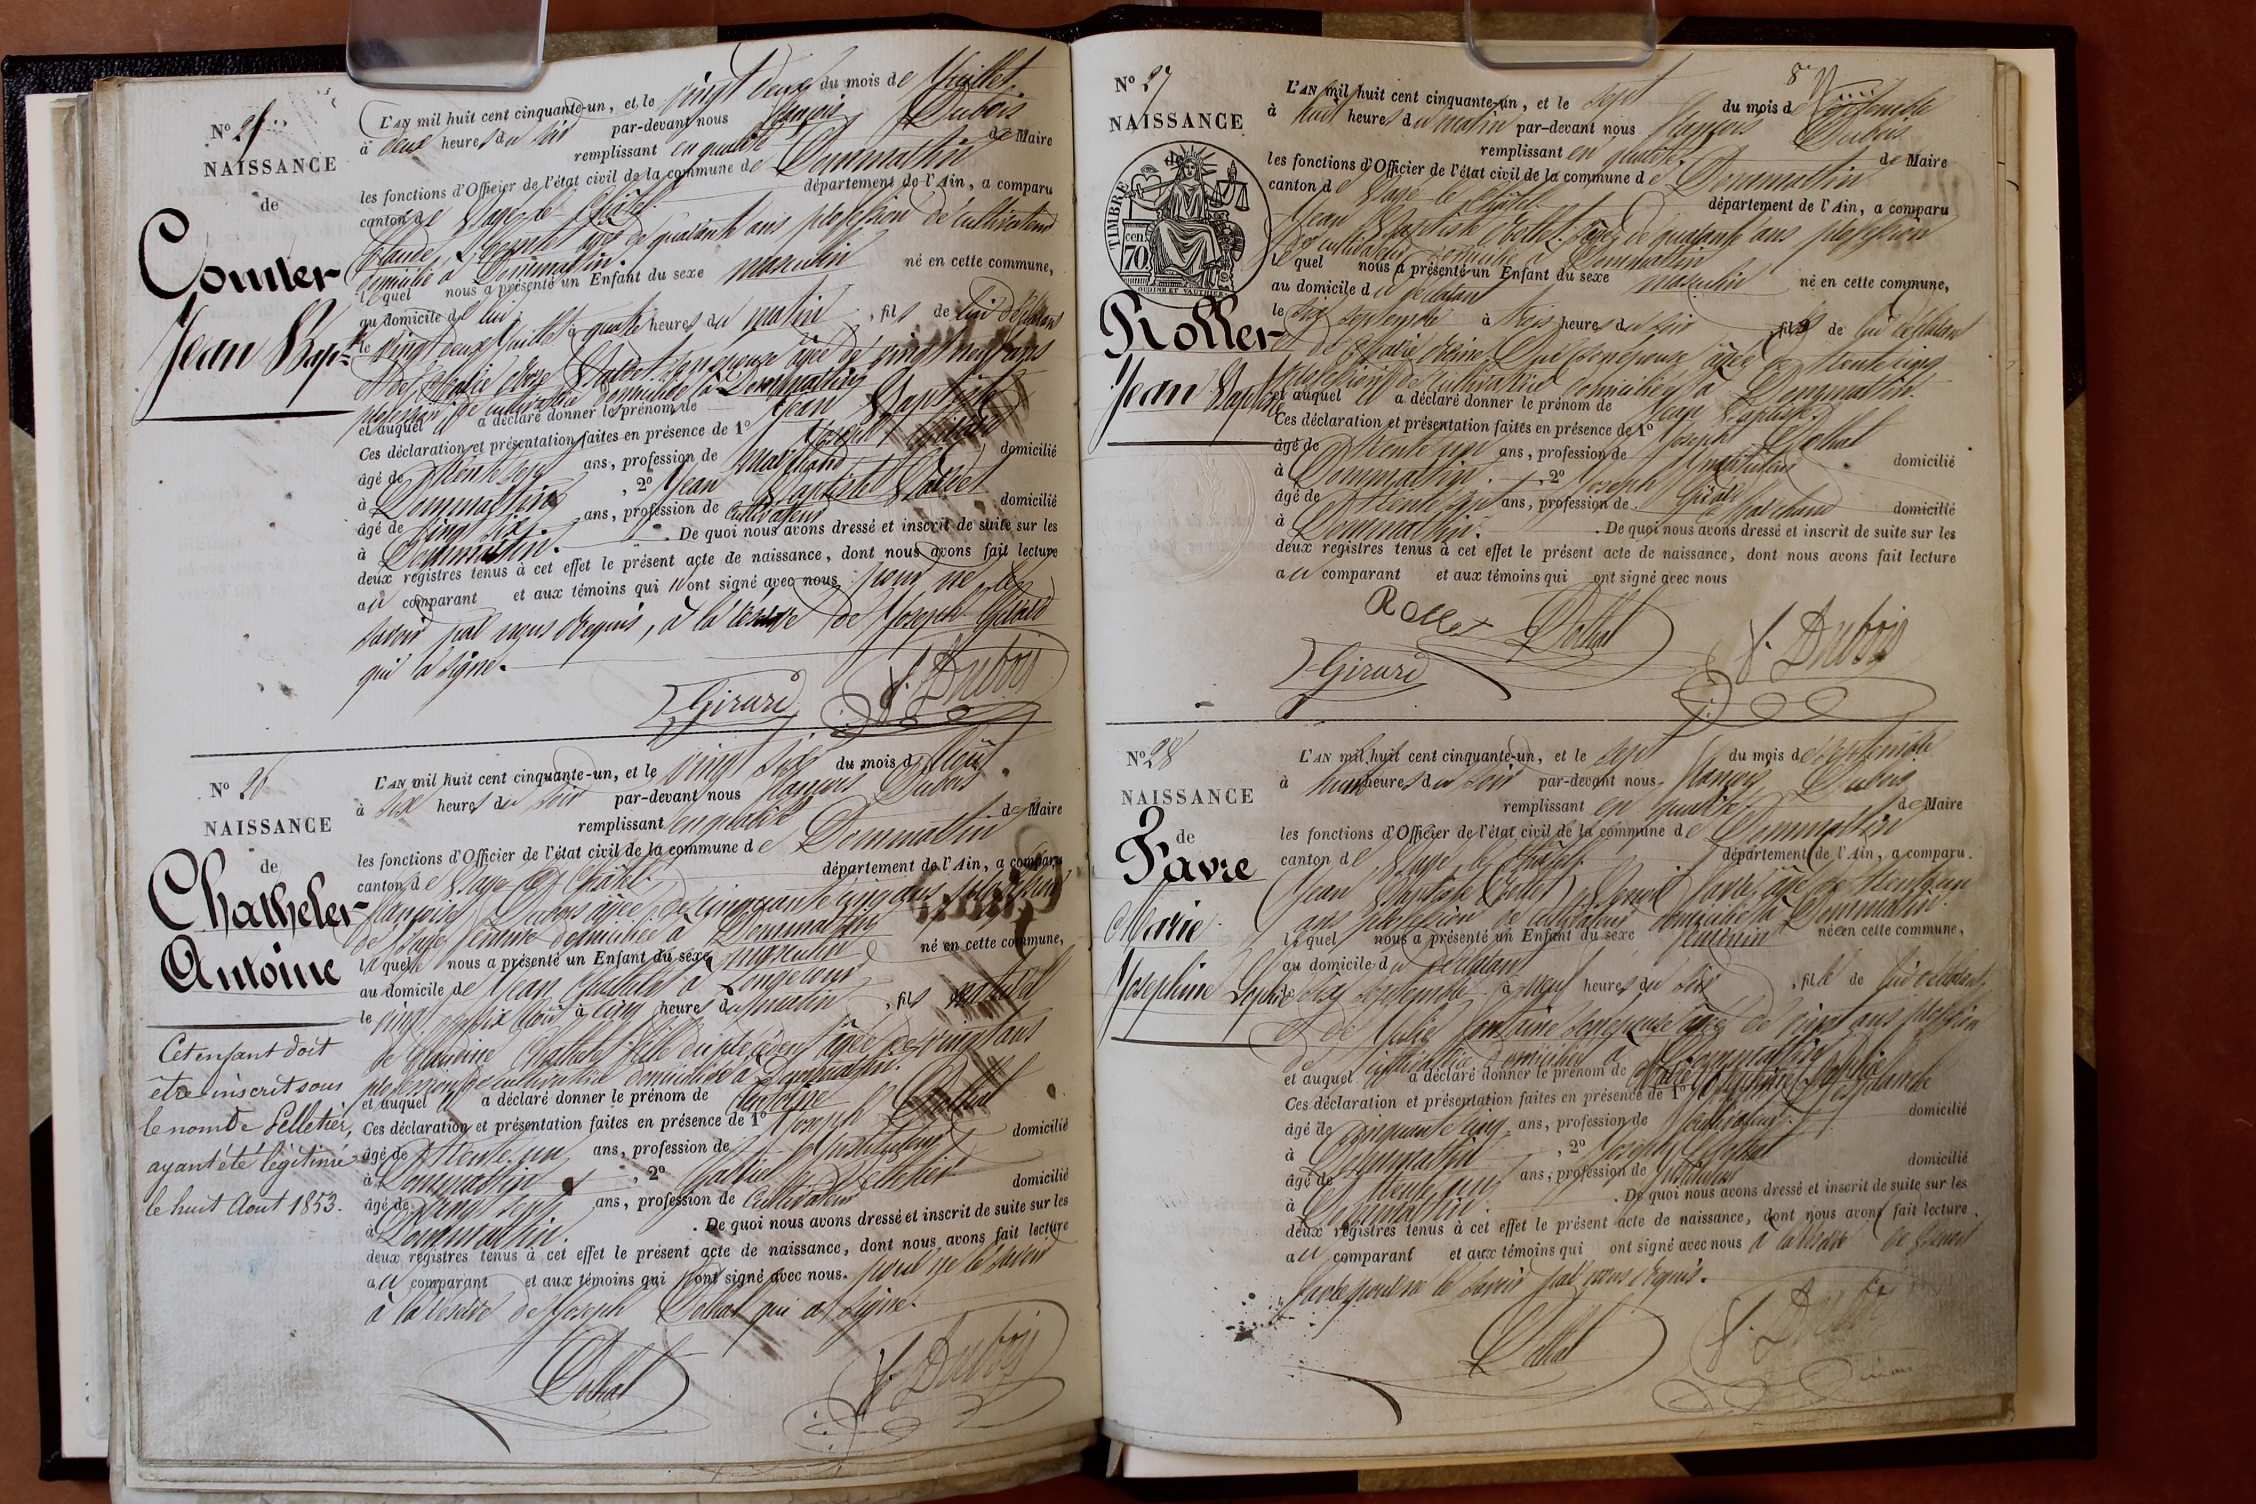 N° 25
NAISSANCE
de
Comter
Jean Bapte
L'AN mil huit cent cinquante-un, et le vingt deux du mois de Juillet
à deux heures du soir par-devant nous François Dubois
remplissant en qualité de Maire
les fonctions d'Officier de l'état civil de la commune de Dommartin
canton de Bagé le Châtel département de l'Ain, a comparu
Claude agé de quarante ans profession de cultivateur
domicilié à Dommartin.
lequel nous a présenté un Enfant du sexe masculin né en cette commune,
au domicile de lui
le vingt deux Juillet à quatre heures du matin, fils de lui déclarant
et de Marie son épouse âgée de vingt neuf ans
profession de cultivatrice domiciliée à Dommartin
et auquel il a déclaré donner le prénom de Jean Baptiste
Ces déclaration et présentation faites en présence de 1° Joseph Girard
âgé de trente ans, profession de marchand domicilié
à Dommartin, 2° Jean Baptiste
âgé de vingt six ans, profession de cultivateur domicilié
à Dommartin. De quoi nous avons dressé et inscrit de suite sur les
deux registres tenus à cet effet le présent acte de naissance, dont nous avons fait lecture
au comparant et aux témoins qui n'ont signé avec nous pour ne le
savoir par nous requis, à la réserve de Joseph Girard
qui a signé.
Girard f. Dubois
N° 26
NAISSANCE
de
Chatheler
Antoine
Cet enfant doit
être inscrit sous
le nom de Pelletier,
ayant été légitimé
le huit Aout 1853.
L'AN mil huit cent cinquante-un, et le vingt six du mois d'Août
à six heures du soir par-devant nous François Dubois
remplissant en qualité de Maire
les fonctions d'Officier de l'état civil de la commune de Dommartin
canton de Bagé le Châtel département de l'Ain, a comparu
Françoise Dubois agée de cinquante cinq ans profession
de sage femme domiciliée à Dommartin
laquelle nous a présenté un Enfant du sexe masculin né en cette commune,
au domicile de Jean Chathelet à
le vingt six Août à cinq heures du matin, fils naturel
de Claudine Chathelet fille du précédent âgée de vingt ans
profession de cultivatrice domiciliée à Dommartin.
et auquel a déclaré donner le prénom de Antoine
Ces déclaration et présentation faites en présence de 1° Joseph Dothat
âgé de trente un ans, profession de Instituteur domicilié
à Dommartin, 2° Pelletier
âgé de vingt sept ans, profession de cultivateur domicilié
à Dommartin. De quoi nous avons dressé et inscrit de suite sur les
deux registres tenus à cet effet le présent acte de naissance, dont nous avons fait lecture
au comparant et aux témoins qui n'ont signé avec nous. pour ne le savoir
à la réserve de Joseph Dothat qui a signé.
Dothat f. Dubois
8
N° 27
NAISSANCE
de
TIMBRE
cen.
70.
OUDINE ET VAUTHIER
Roller
Jean Baptiste
L'AN mil huit cent cinquante-un, et le sept du mois de Septembre
à huit heures du matin par-devant nous François Dubois
remplissant en qualité de Maire
les fonctions d'Officier de l'état civil de la commune de Dommartin
canton de Bagé le Châtel département de l'Ain, a comparu
Jean Baptiste Rollet âgé de quarante ans profession
de cultivateur domicilié à Dommartin
lequel nous a présenté un Enfant du sexe masculin né en cette commune,
au domicile du déclarant
le six septembre à trois heures du soir fils de lui déclarant
et de Marie son épouse âgée de trente cinq
profession de cultivatrice domiciliée à Dommartin.
et auquel il a déclaré donner le prénom de Jean Baptiste.
Ces déclaration et présentation faites en présence de 1° Joseph Dothat
âgé de trente un ans, profession de Instituteur domicilié
à Dommartin. 2° Joseph Girard
âgé de trente ans, profession de Marchand domicilié
à Dommartin. De quoi nous avons dressé et inscrit de suite sur les
deux registres tenus à cet effet le présent acte de naissance, dont nous avons fait lecture
au comparant et aux témoins qui ont signé avec nous
Rollet Dothat
Girard f. Dubois
N° 28
NAISSANCE
de
Favre
Marie
Joséphine Sophie
L'AN mil huit cent cinquante-un, et le sept du mois de Septembre
à heures du soir par-devant nous François Dubois
remplissant en qualité de Maire
les fonctions d'Officier de l'état civil de la commune de Dommartin
canton de Bagé le Châtel département de l'Ain, a comparu
Jean Baptiste Benoit Favre âgé de trente un
ans profession de cultivateur domicilié à Dommartin
lequel nous a présenté un Enfant du sexe féminin née en cette commune,
au domicile du déclarant
le six septembre à neuf heures du soir, fille de lui déclarant,
et de Julie Fontaine son épouse âgée de vingt ans profession
de cultivatrice domiciliée à Dommartin
et auquel a déclaré donner le prénom de Marie Joséphine Sophie
Ces déclaration et présentation faites en présence de 1°
âgé de cinquante cinq ans, profession de cultivateur domicilié
à Dommartin, 2° Joseph Dothat
âgé de trente un ans, profession de Instituteur domicilié
à Dommartin. De quoi nous avons dressé et inscrit de suite sur les
deux registres tenus à cet effet le présent acte de naissance, dont nous avons fait lecture
au comparant et aux témoins qui ont signé avec nous à la réserve de Benoit
Favre pour ne le savoir par nous requis.
Dothat f. Dubois